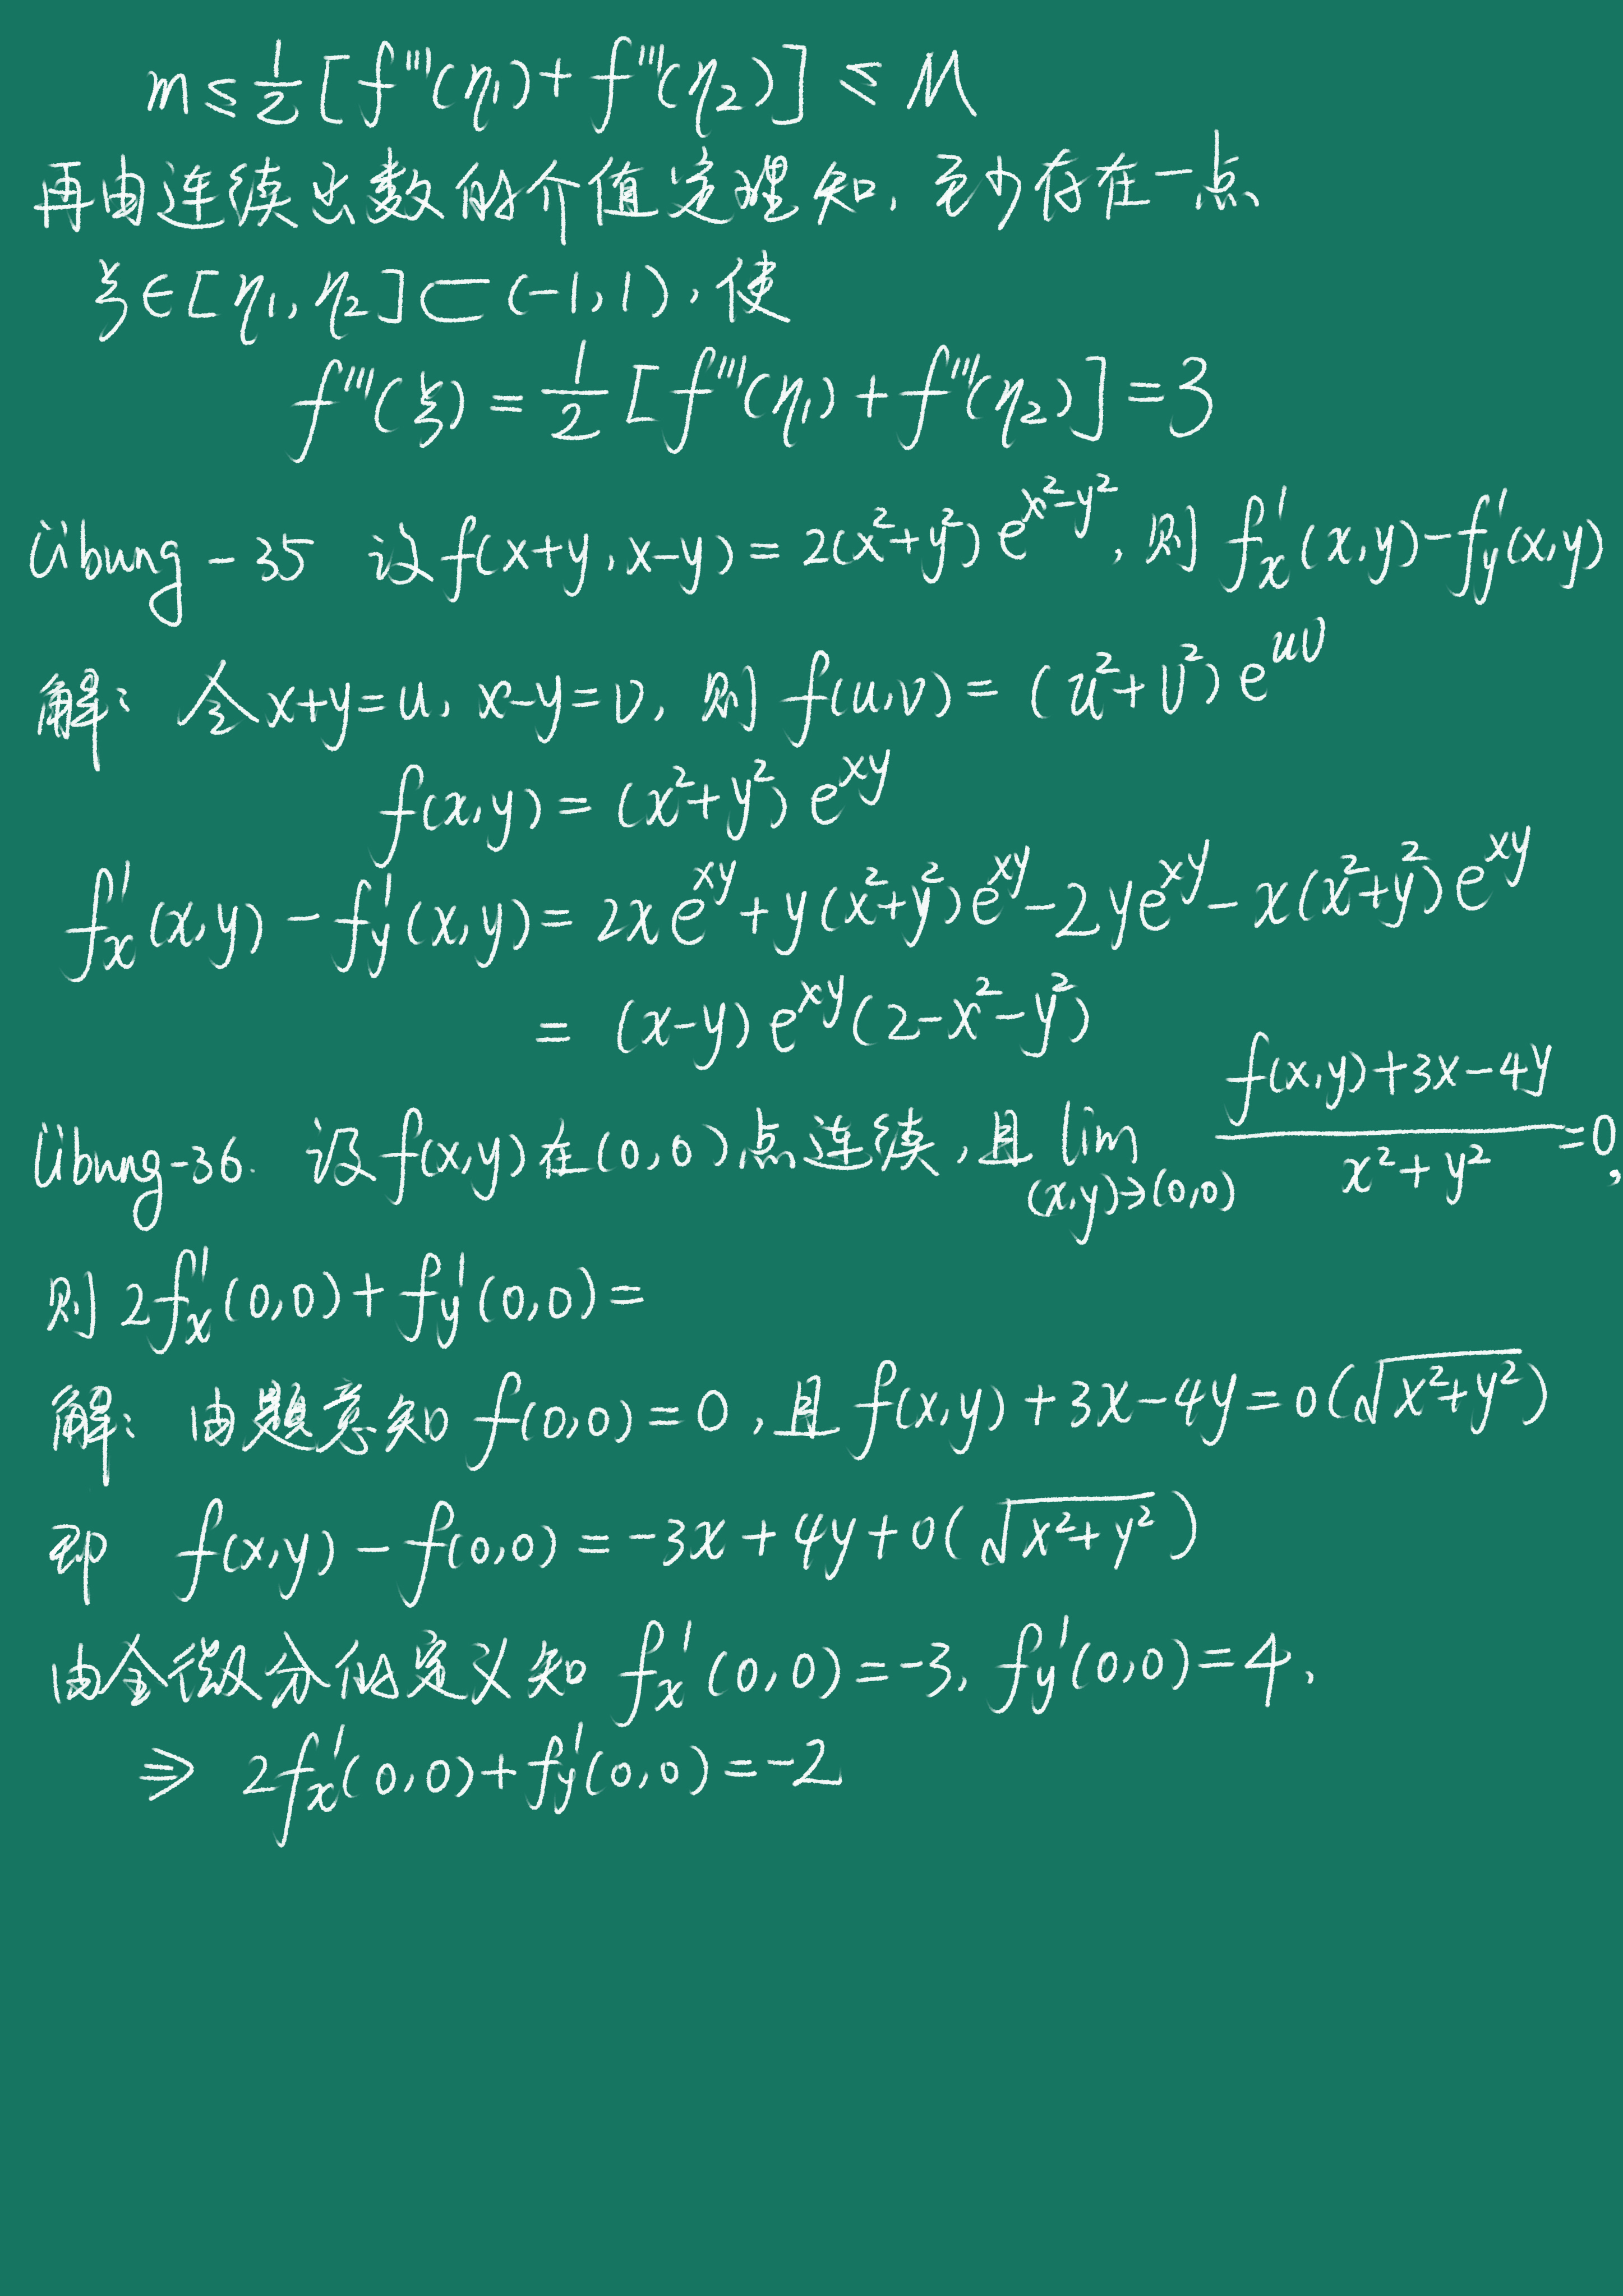 m ≤ 1/2 [f'''(η₁) + f'''(η₂)] ≤ M
再由连续函数的介值定理知, 至少存在一点
ξ∈[η₁, η₂]⊂(-1, 1), 使
f'''(ξ) = 1/2 [f'''(η₁) + f'''(η₂)] = 3
Übung - 35 设 f(x+y, x-y) = 2(x²+y²) e^(x²-y²), 则 f'ₓ(x,y) - f'ᵧ(x,y)
解: 令 x+y=u, x-y=v, 则 f(u,v) = (u²+v²) e^(uv)
f(x,y) = (x²+y²) e^(xy)
f'ₓ(x,y) - f'ᵧ(x,y) = 2x e^(xy) + y(x²+y²)e^(xy) - 2ye^(xy) - x(x²+y²)e^(xy)
= (x-y) e^(xy) (2-x²-y²)
Übung-36. 设 f(x,y) 在 (0,0) 点连续, 且 lim_((x,y)→(0,0)) (f(x,y)+3x-4y)/(x²+y²) = 0,
则 2f'ₓ(0,0) + f'ᵧ(0,0) =
解: 由题意知 f(0,0) = 0, 且 f(x,y) + 3x - 4y = o(√(x²+y²))
即 f(x,y) - f(0,0) = -3x + 4y + o(√(x²+y²))
由全微分的定义知 f'ₓ(0,0) = -3, f'ᵧ(0,0) = 4,
⇒ 2f'ₓ(0,0) + f'ᵧ(0,0) = -2